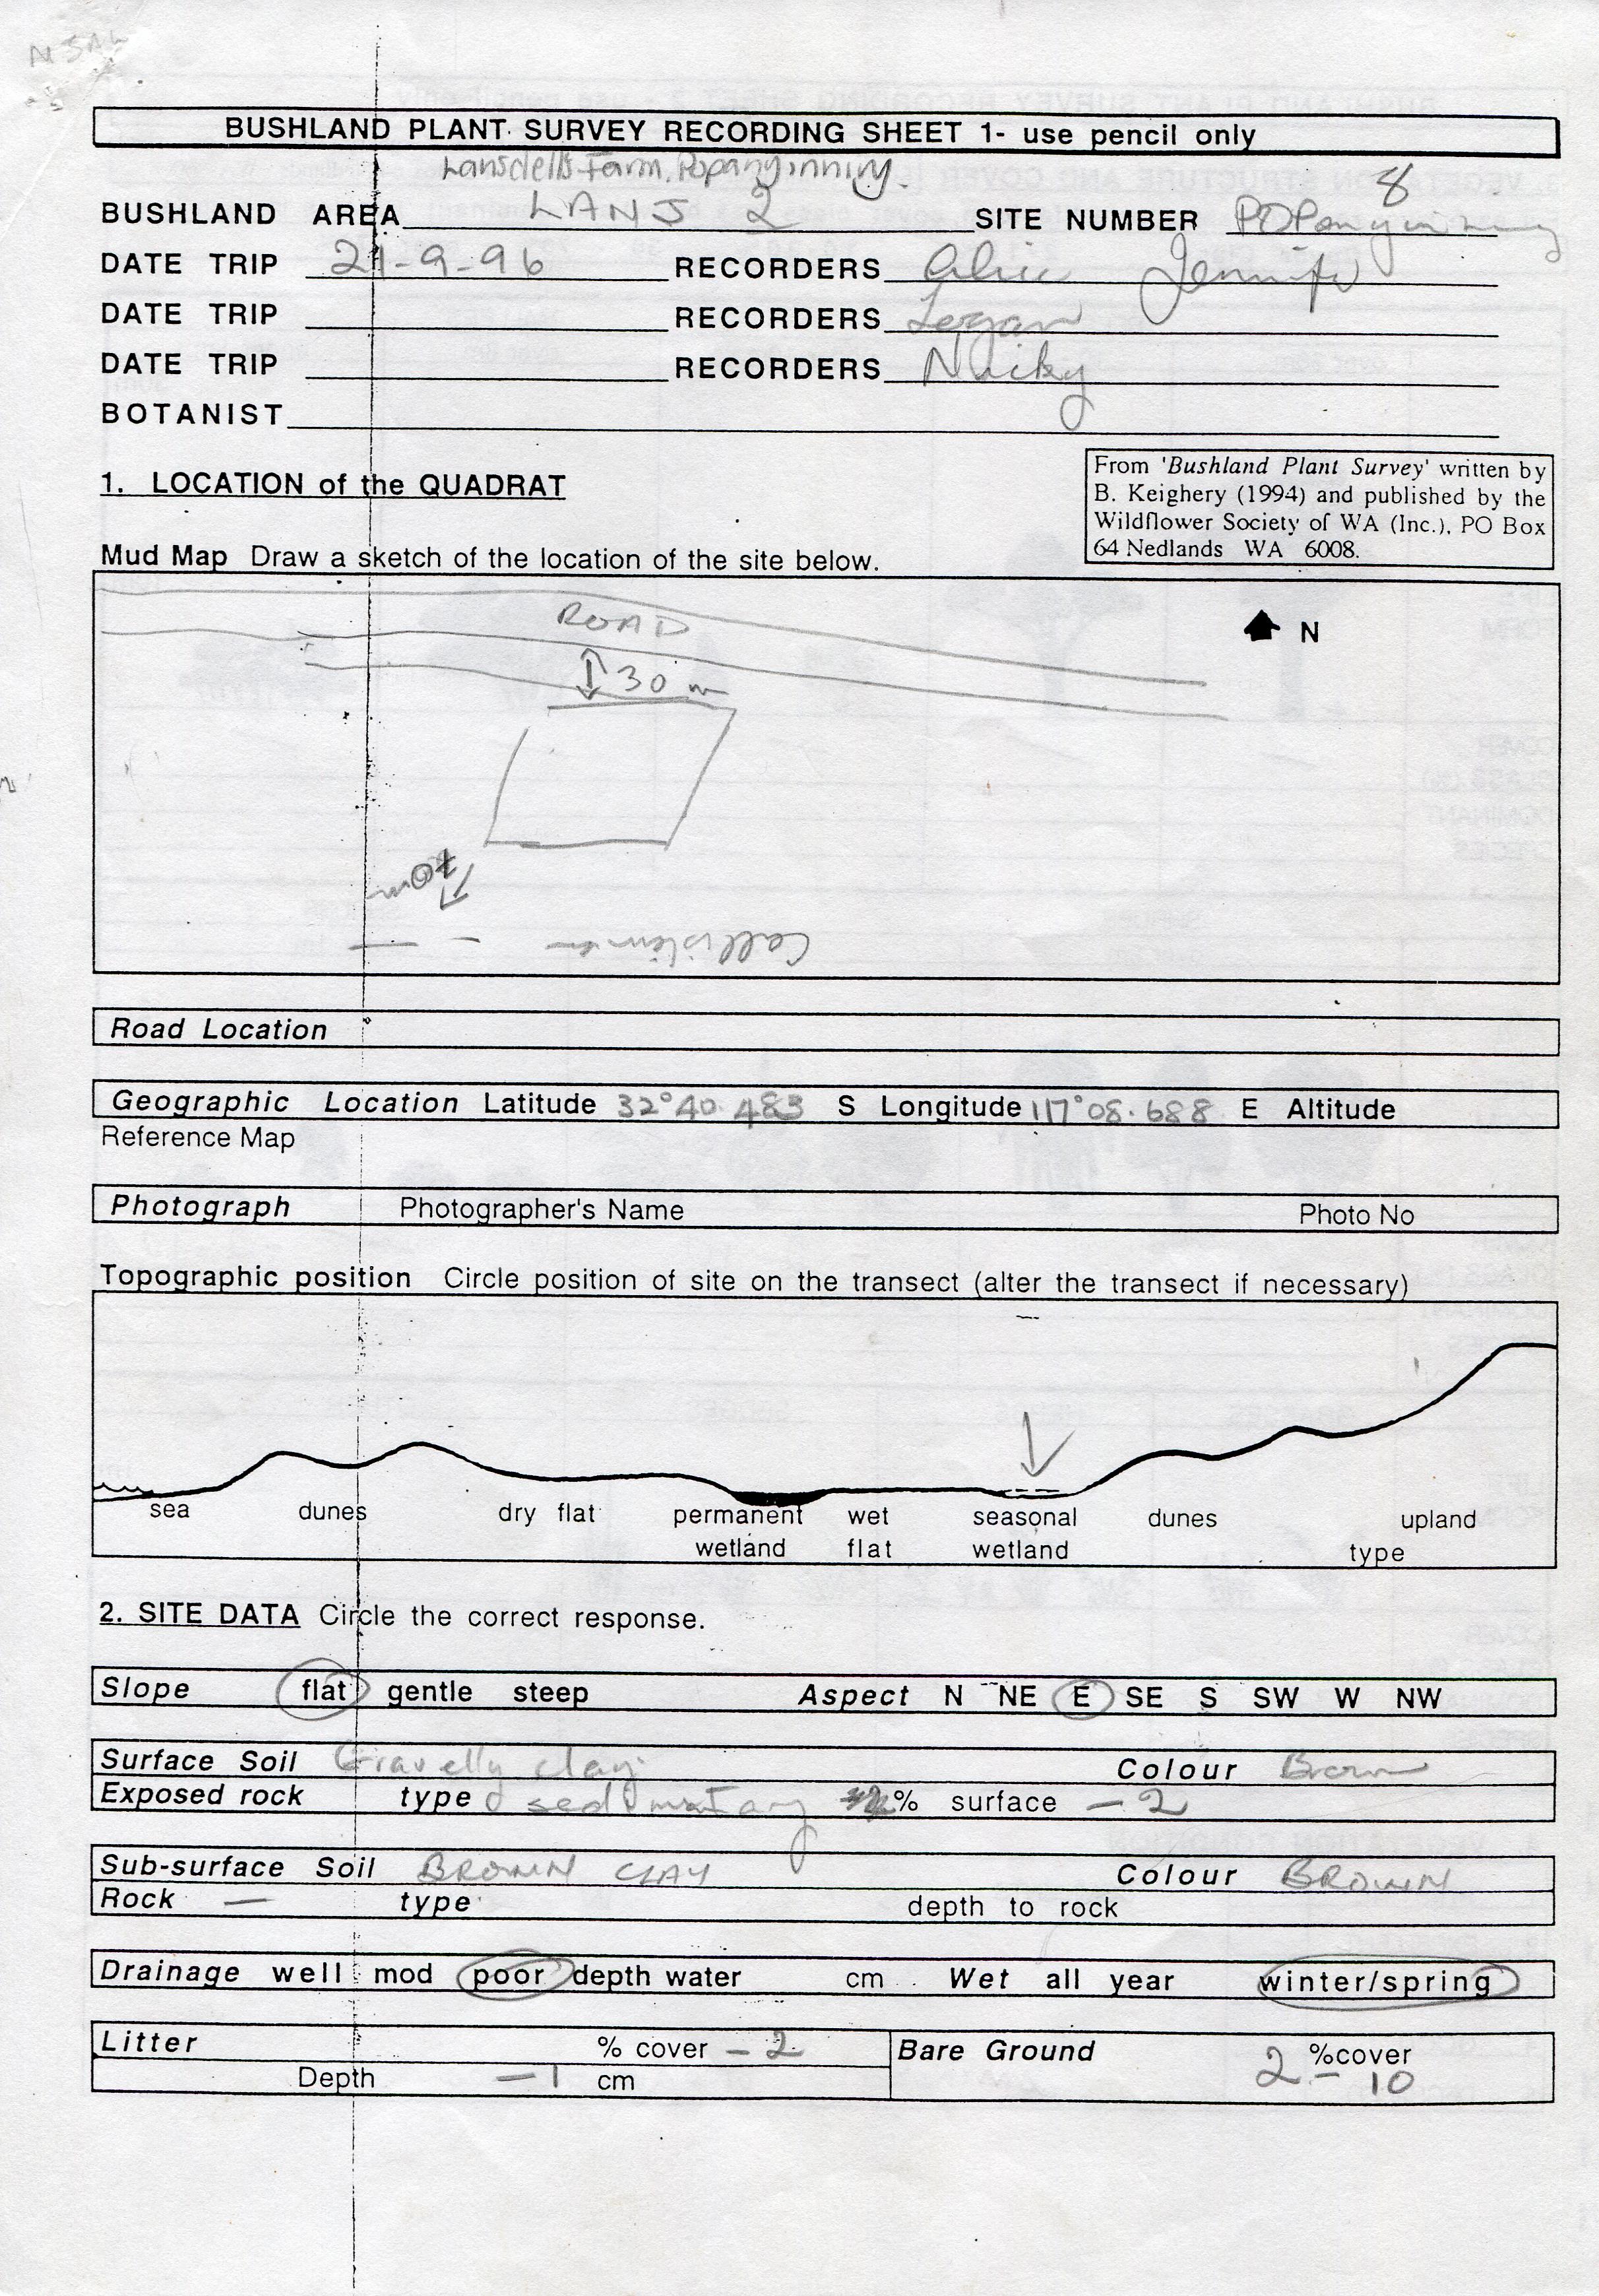 BUSHLAND PLANT SURVEY RECORDING SHEET 1- use pencil only
Lansdell's Farm, Popanyinning.
8
BUSHLAND AREA LANS 2 SITE NUMBER POPanyinning
DATE TRIP 21-9-96 RECORDERS Jennifer
DATE TRIP RECORDERS
DATE TRIP RECORDERS
BOTANIST
1. LOCATION of the QUADRAT
From 'Bushland Plant Survey' written by
B. Keighery (1994) and published by the
Wildflower Society of WA (Inc.), PO Box
64 Nedlands WA 6008.
Mud Map Draw a sketch of the location of the site below.
ROAD
N
30 m
70m
Callistemon
Road Location
Geographic Location Latitude 32°40.483 S Longitude 117°08.688 E Altitude
Reference Map
Photograph Photographer's Name Photo No
Topographic position Circle position of site on the transect (alter the transect if necessary)
sea dunes dry flat permanent wet seasonal dunes upland
wetland flat wetland type
2. SITE DATA Circle the correct response.
Slope flat gentle steep Aspect N NE E SE S SW W NW
Surface Soil Gravelly clay Colour Brown
Exposed rock type sedimentary % surface - 2
Sub-surface Soil BROWN CLAY Colour BROWN
Rock — type depth to rock
Drainage well mod poor depth water cm Wet all year winter/spring
Litter % cover - 2 Bare Ground %cover
2 - 10
Depth - 1 cm